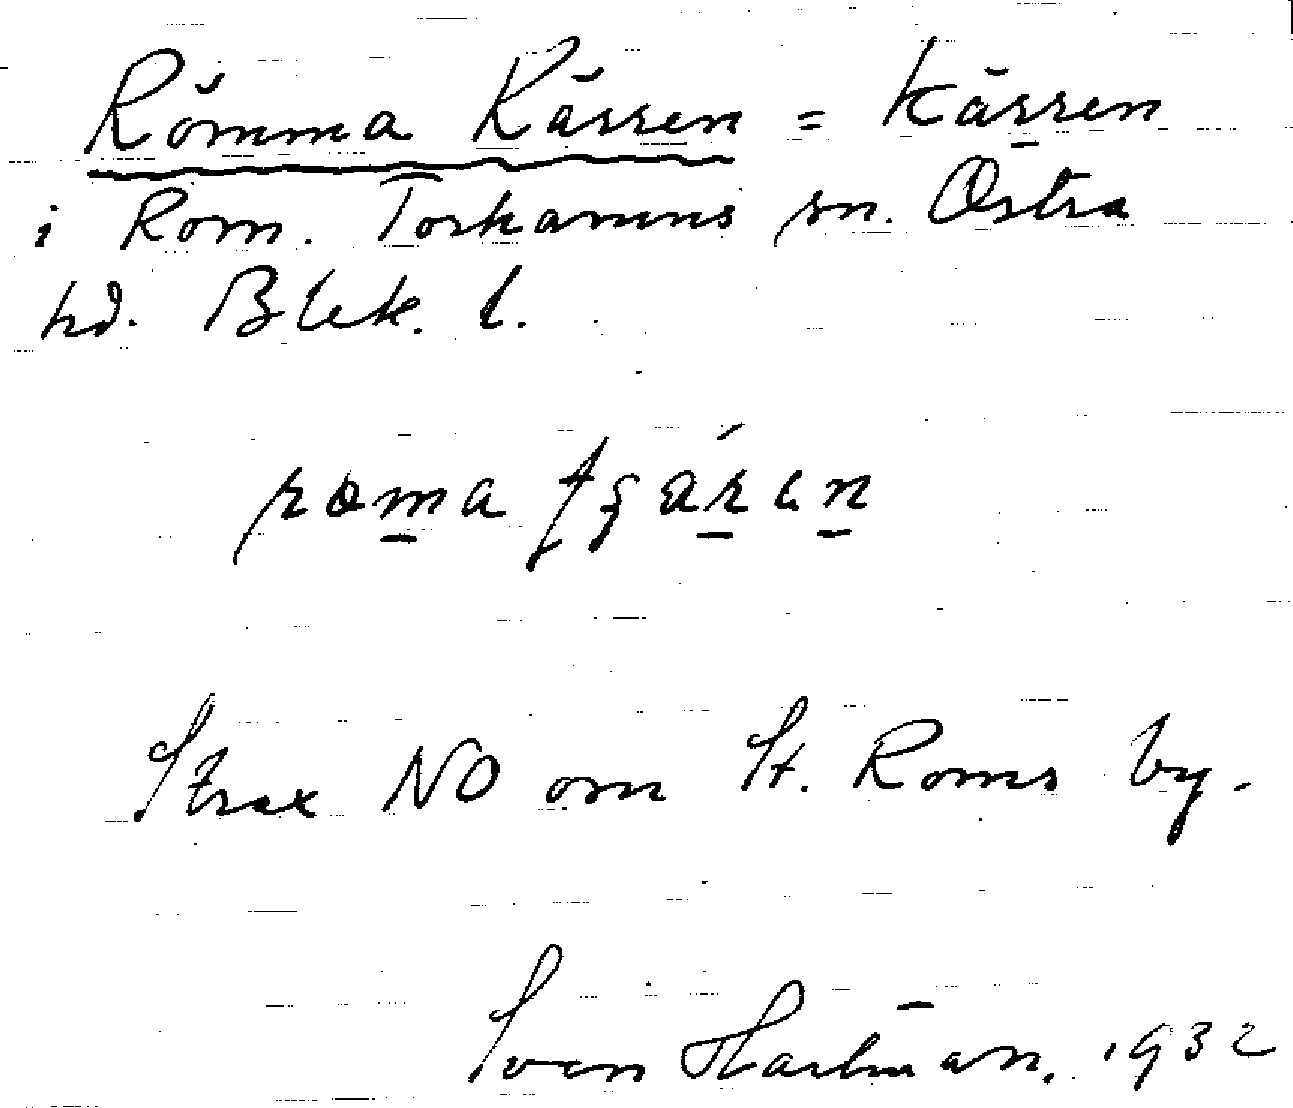 Römma Kärren = Kärren
i Rom. Torhamns sn. Östra
hd. Blek. l.
Strax NO om St. Roms by.
Sven Hartman. 1932